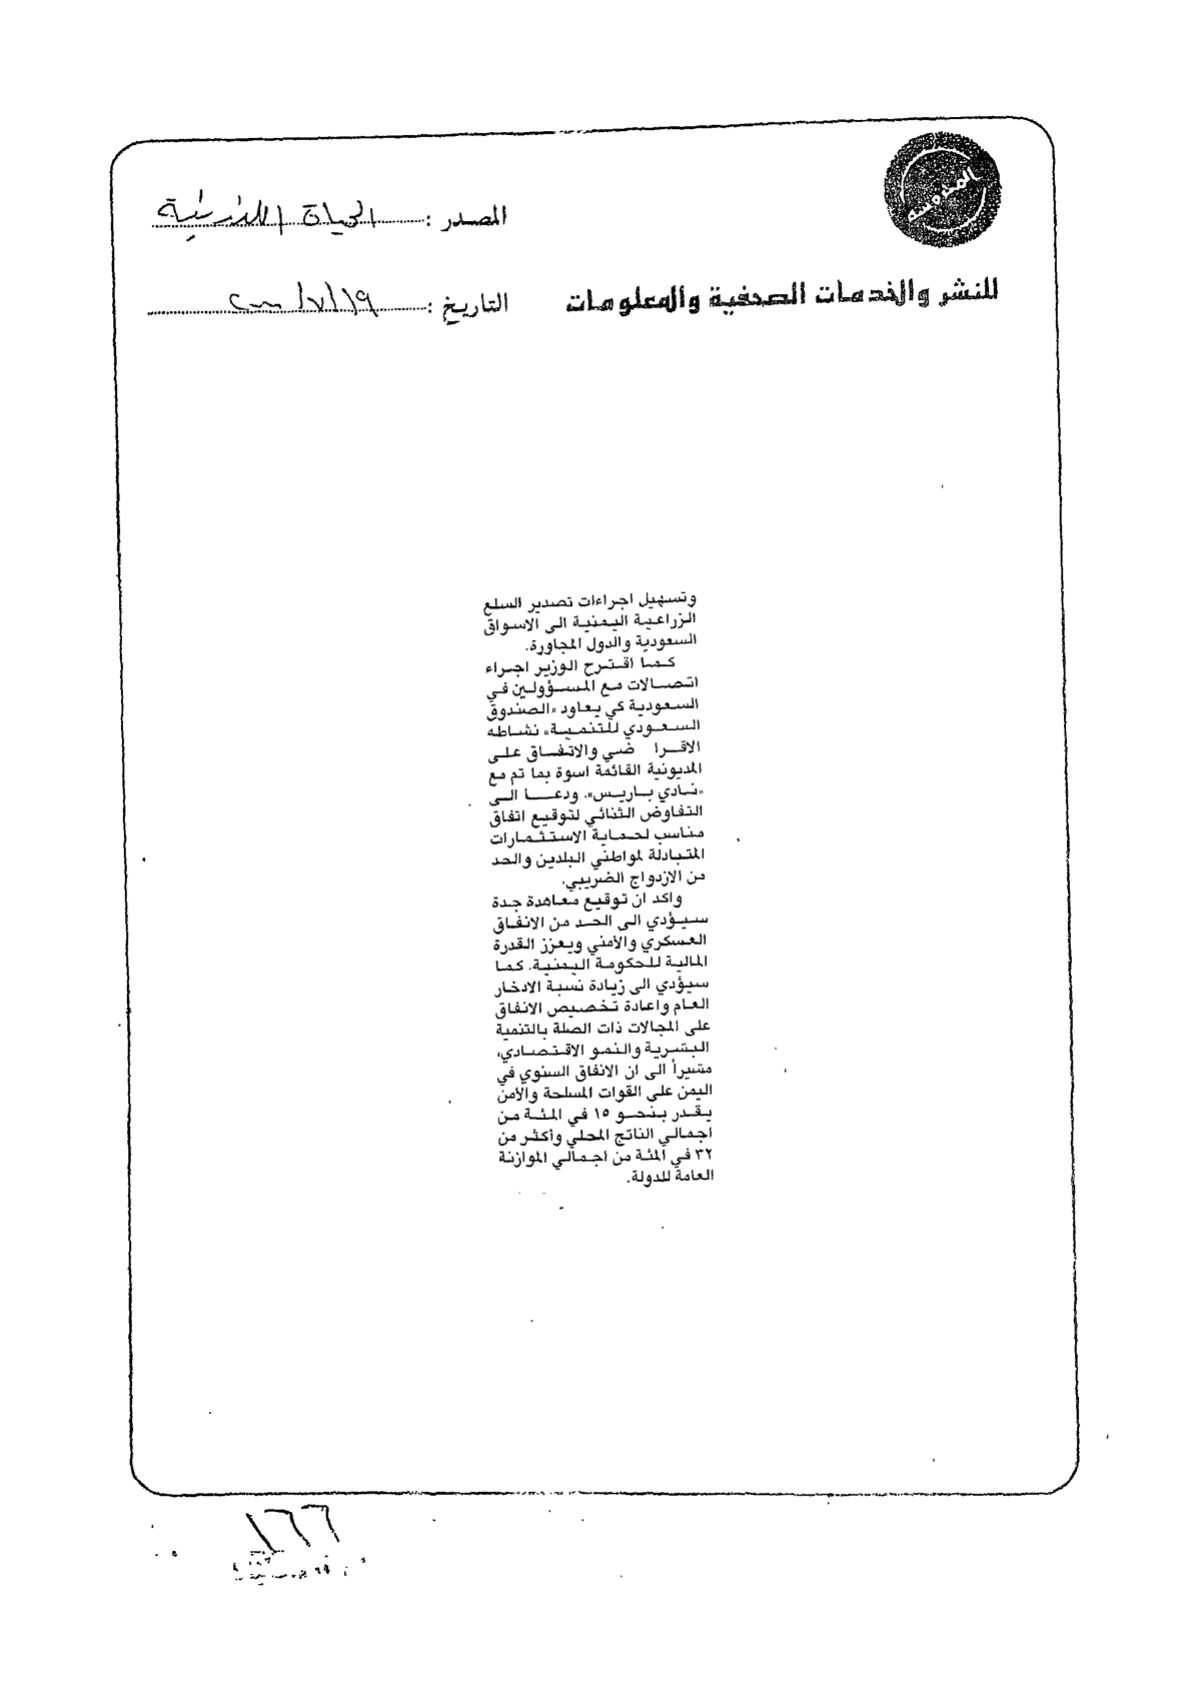 المصدر : الحياة اللندنية
للنشر والخدمات الصحفية والمعلومات
التاريخ : ١٩/٧/٢٠٠٠
وتسهيل اجراءات تصدير السلع
الزراعية اليمنية الى الاسواق
السعودية والدول المجاورة.
كما اقترح الوزير اجراء
اتصالات مع المسؤولين في
السعودية كي يعاود «الصندوق
السعودي للتنمية» نشاطه
الاقرا ضي والاتفاق على
المديونية القائمة اسوة بما تم مع
«نادي باريس». ودعا الى
التفاوض الثنائي لتوقيع اتفاق
مناسب لحماية الاستثمارات
المتبادلة لمواطني البلدين والحد
من الازدواج الضريبي.
واكد ان توقيع معاهدة جدة
سيؤدي الى الحد من الانفاق
العسكري والأمني ويعزز القدرة
المالية للحكومة اليمنية. كما
سيؤدي الى زيادة نسبة الادخار
العام واعادة تخصيص الانفاق
على المجالات ذات الصلة بالتنمية
البشرية والنمو الاقتصادي،
مشيراً الى ان الانفاق السنوي في
اليمن على القوات المسلحة والأمن
يقدر بنحو ١٥ في المئة من
اجمالي الناتج المحلي وأكثر من
٣٢ في المئة من اجمالي الموازنة
العامة للدولة.
١٦٦